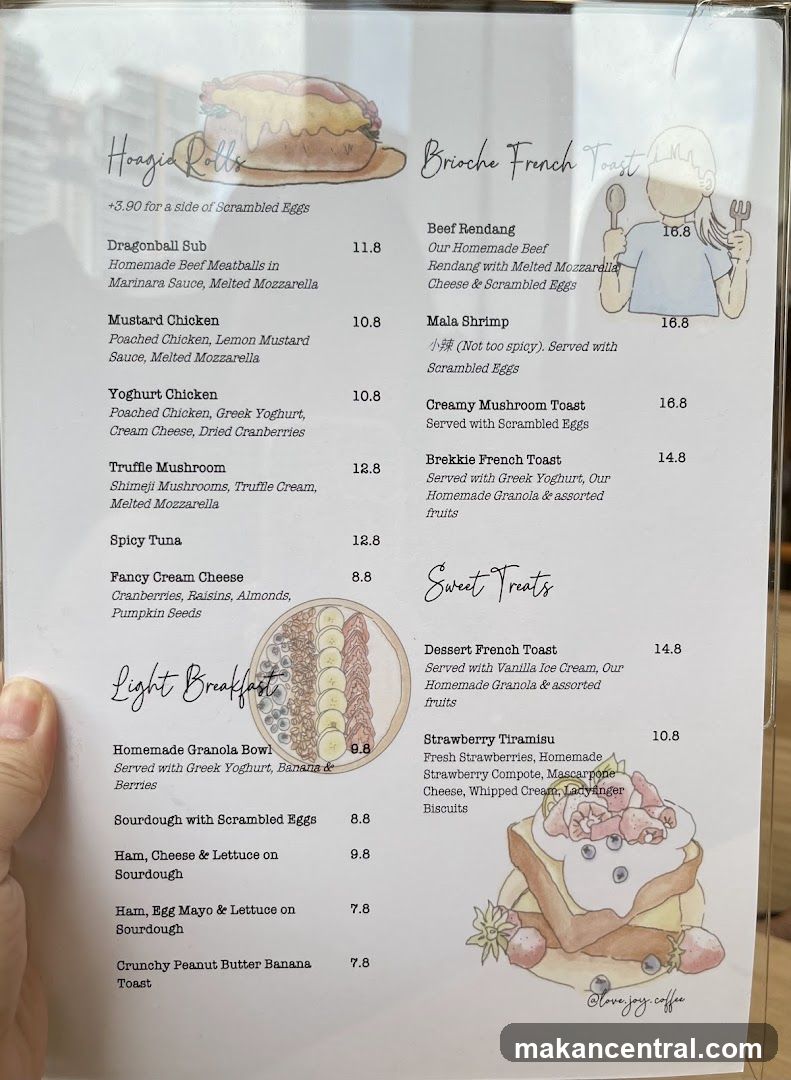 Hoagie Rolls
+3.90 for a side of Scrambled Eggs
Dragonball Sub 11.8
Homemade Beef Meatballs in
Marinara Sauce, Melted Mozzarella
Mustard Chicken 10.8
Poached Chicken, Lemon Mustard
Sauce, Melted Mozzarella
Yoghurt Chicken 10.8
Poached Chicken, Greek Yoghurt,
Cream Cheese, Dried Cranberries
Truffle Mushroom 12.8
Shimeji Mushrooms, Truffle Cream,
Melted Mozzarella
Spicy Tuna 12.8
Fancy Cream Cheese 8.8
Cranberries, Raisins, Almonds,
Pumpkin Seeds
Light Breakfast
Homemade Granola Bowl 9.8
Served with Greek Yoghurt, Banana &
Berries
Sourdough with Scrambled Eggs 8.8
Ham, Cheese & Lettuce on 9.8
Sourdough
Ham, Egg Mayo & Lettuce on 7.8
Sourdough
Crunchy Peanut Butter Banana 7.8
Toast
Brioche French Toast
Beef Rendang 16.8
Our Homemade Beef
Rendang with Melted Mozzarella
Cheese & Scrambled Eggs
Mala Shrimp 16.8
小辣 (Not too spicy). Served with
Scrambled Eggs
Creamy Mushroom Toast 16.8
Served with Scrambled Eggs
Brekkie French Toast 14.8
Served with Greek Yoghurt, Our
Homemade Granola & assorted
fruits
Sweet Treats
Dessert French Toast 14.8
Served with Vanilla Ice Cream, Our
Homemade Granola & assorted
fruits
Strawberry Tiramisu 10.8
Fresh Strawberries, Homemade
Strawberry Compote, Mascarpone
Cheese, Whipped Cream, Ladyfinger
Biscuits
@love.joy.coffee
makancentral.com